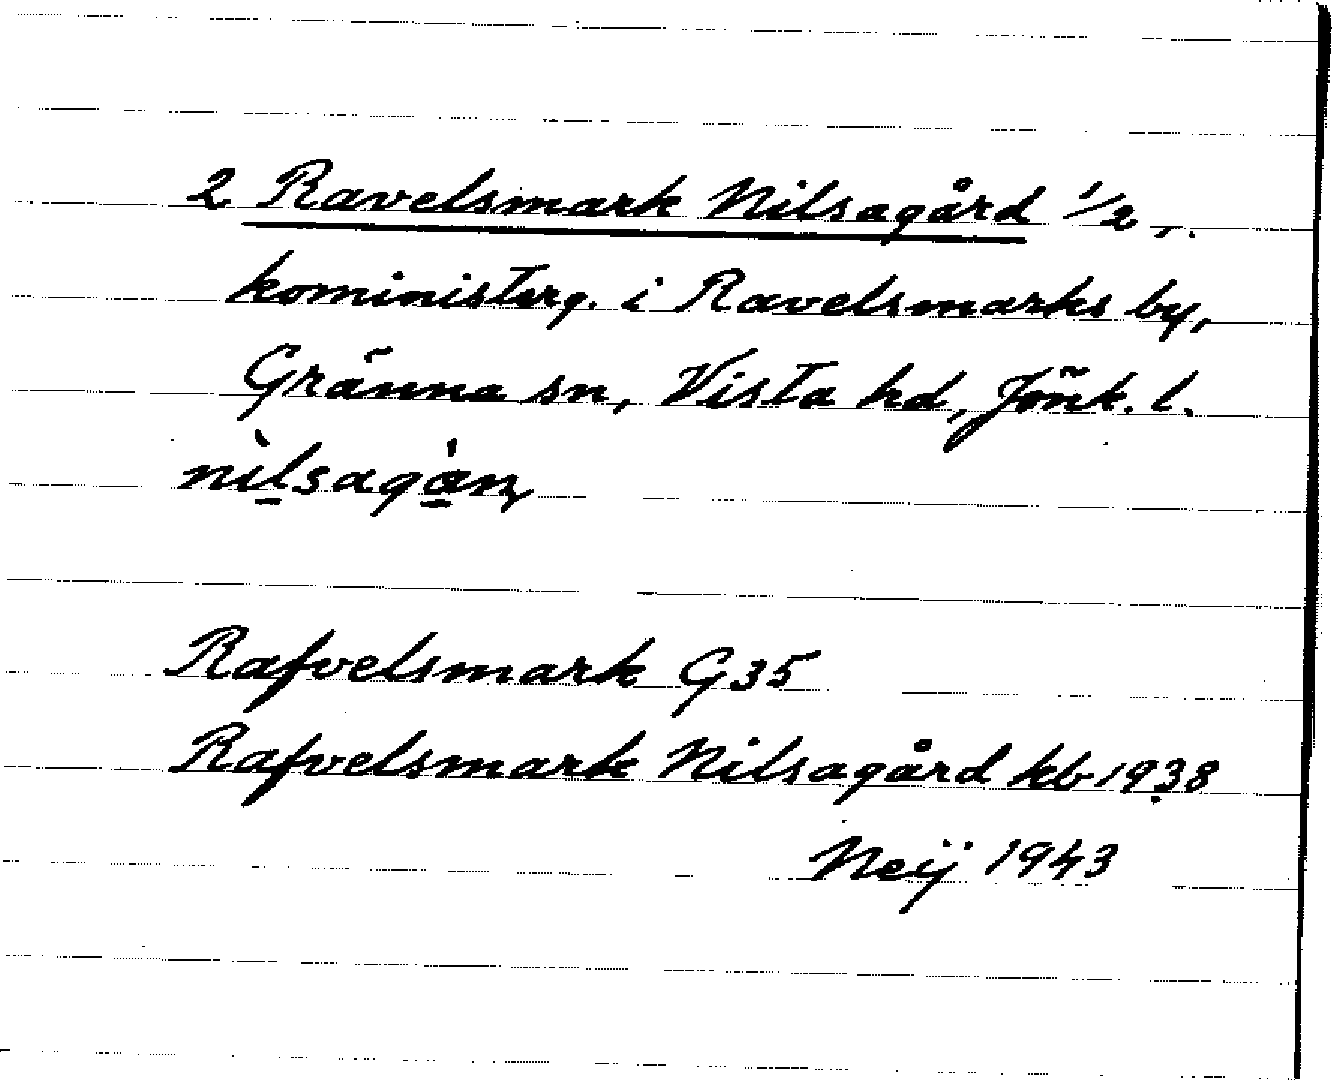 2 Ravelsmark Nilsagård 1/2,
koministerg. i Ravelsmarks by,
Gränna sn, Vista hd, Jönk. l.
Rafvelsmark G35
Rafvelsmark Nilsagård kb 1938
Neij 1943